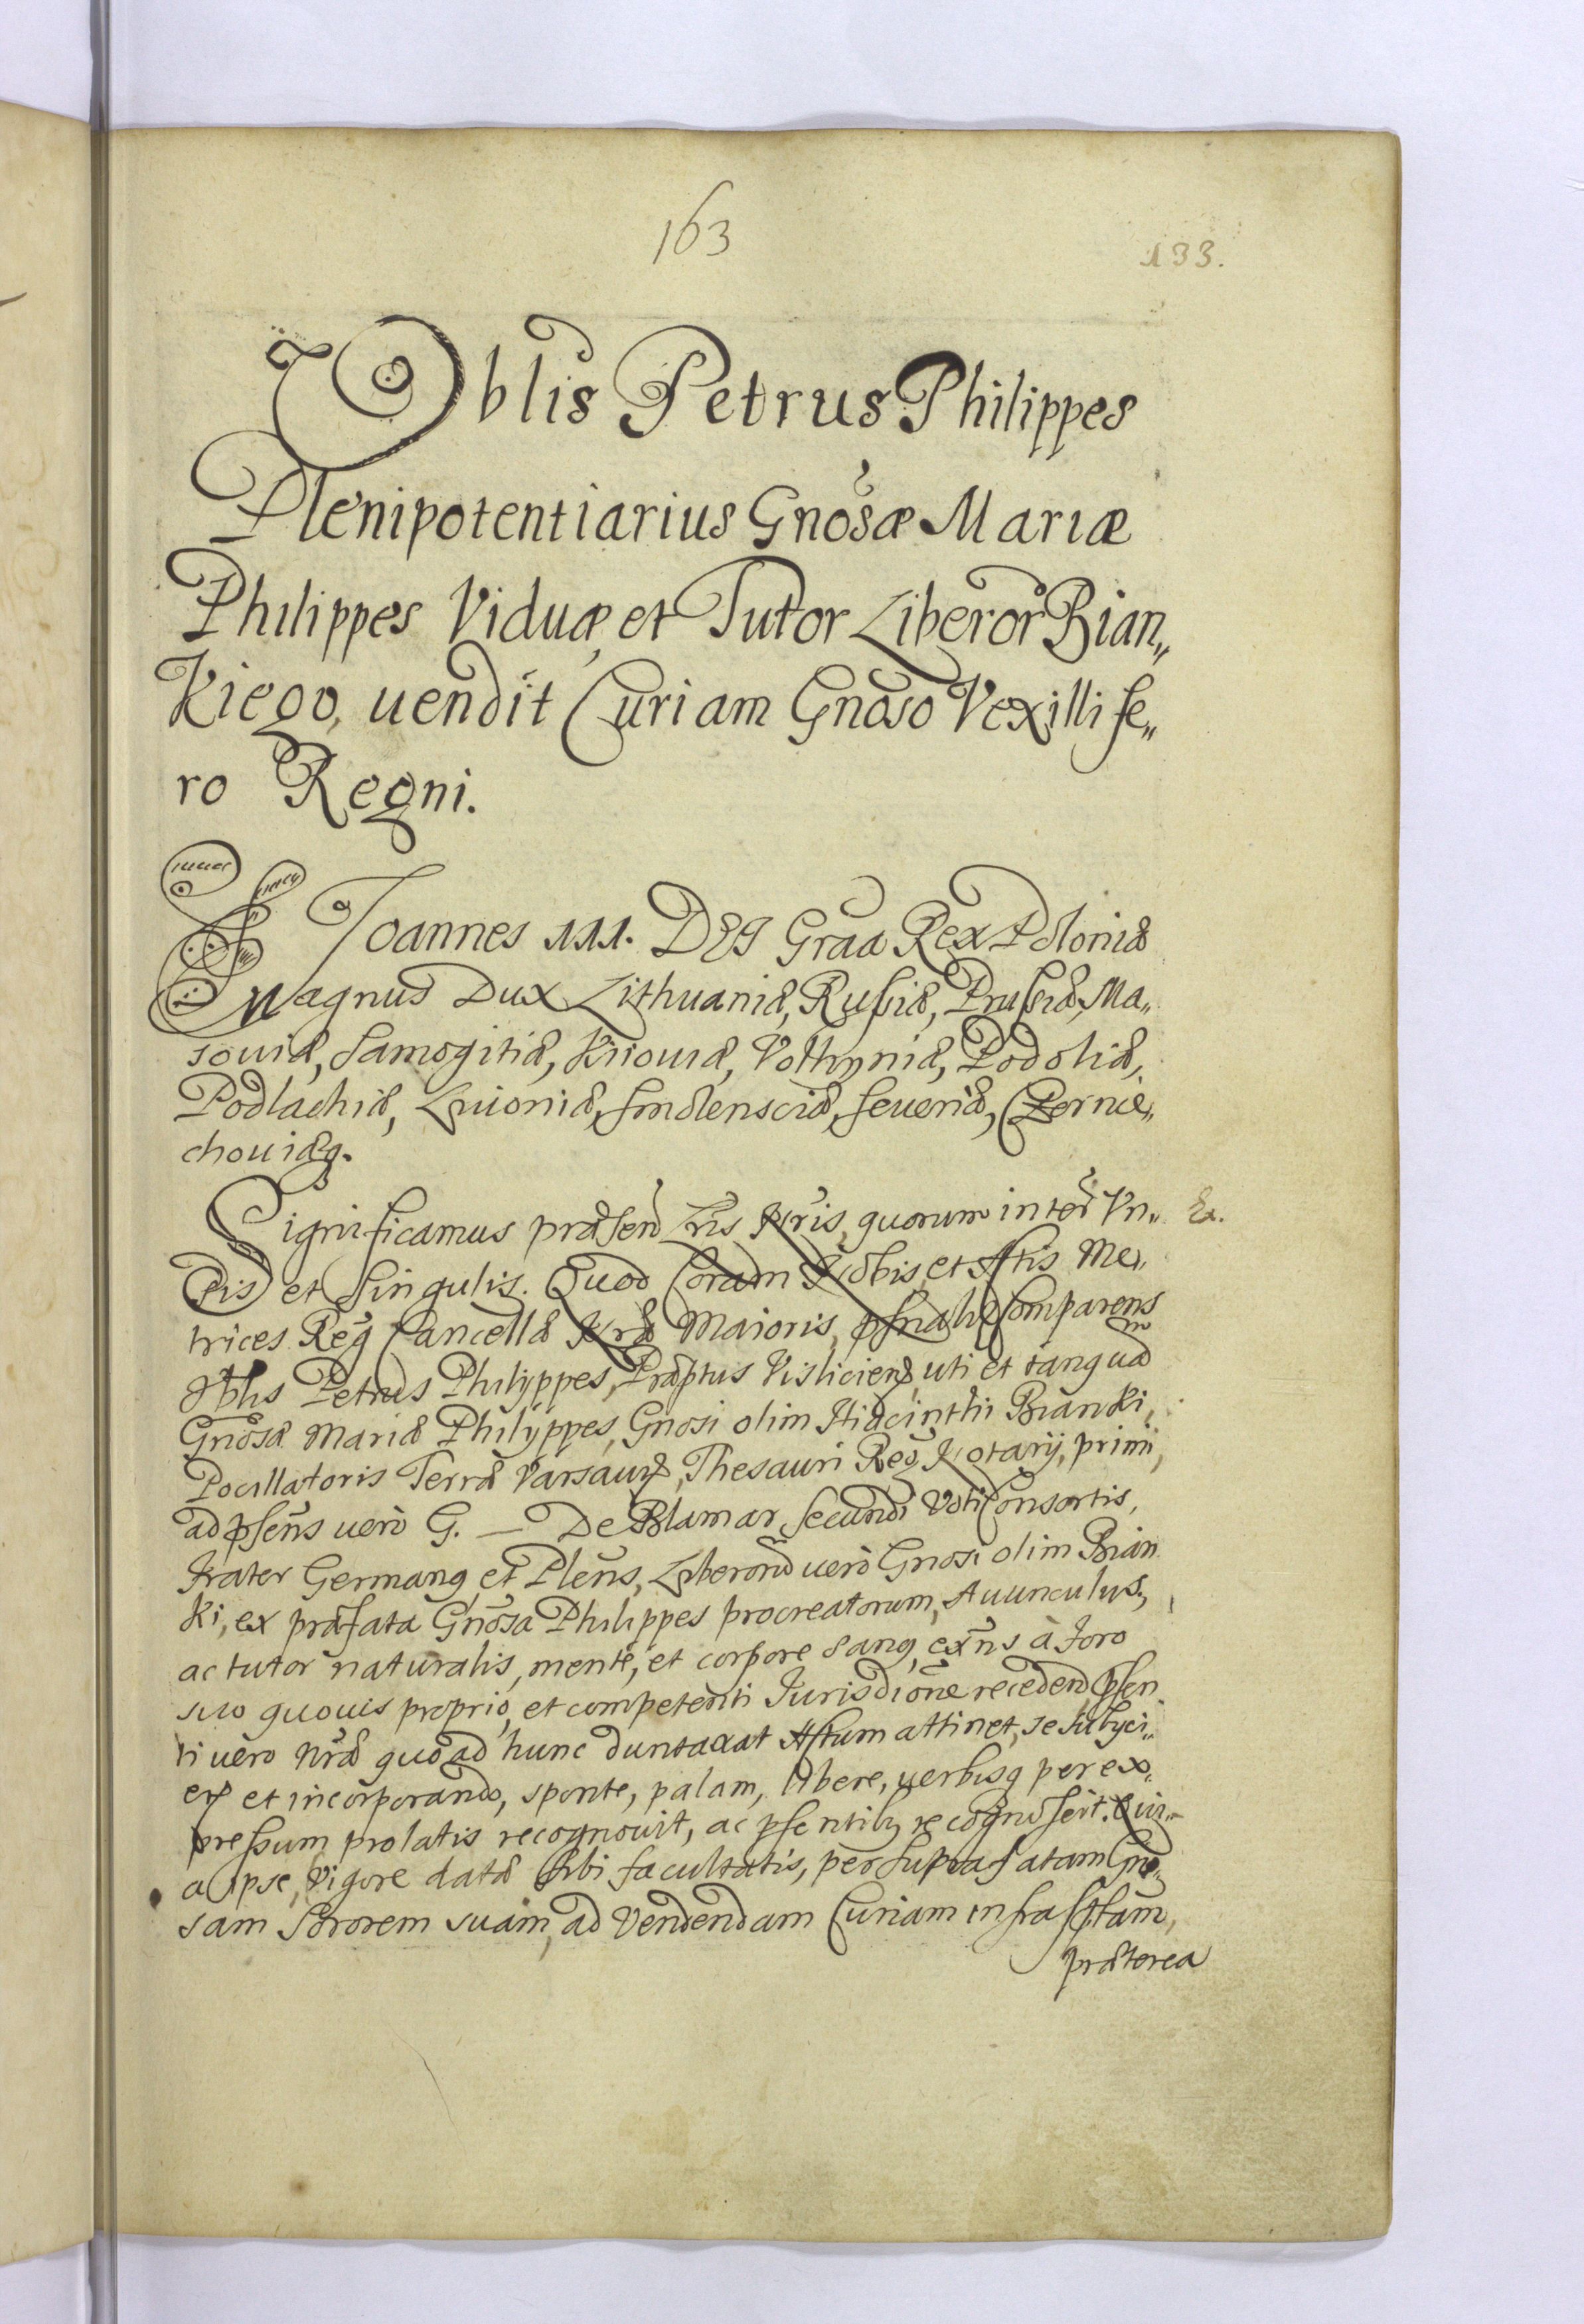 163
133.
Nblis Petrus Philippes
Plenipotentiarius Gnosæ Mariæ
Philippes Viduæ, et Tutor Liberor Bian„
Kiego, uendit Curiam Gnoso Vexillife„
ro Regni.
Joannes III. DEI Graa Rex Poloniæ
Magnus Dux Lithuaniæ, Rußiæ, Prußiæ, Ma„
souiæ, Samogitiæ, Kiiouiæ, Volhyniæ, Podoliæ,
Podlachiæ, Liuoniæ, Smolensciæ, Seueriæ, Czernie„
chouiæq.
Significamus præsen Lris Nris, quorum inter Vn„ &.
sis et Singulis. Quod Coram Nobis, et Actis Me„
trices Reg Cancellæ Nræ Maioris, psnalr Comparens
Nblis Petrus Philyppes, Præptus Vislicien, uti et tanquā
Gnosæ Mariæ Philyppes, Gnosi olim Hiacinthi Bianki,
Pocillatoris Terræ Varsauien, Thesauri Reg Notarij, primi,
ad psens uero G. — De Blamar Secundi Voti Consortis,
Frater Germanq, et Plens, Liberorū uero Gnosi olim Bian
Ki, ex præfata Gnosa Philippes procreatorum, Auunculus,
ac tutor naturalis, mente, et corpore sanq, exns à Foro
suo quouis proprio, et competenti Jurisdione recedend, psen
ti uero Nræ quo ad hunc duntaxat Actum attinet, se subyci„
en et incorporando, sponte, palam, libere, uerbisq per ex„
preßum prolatis recognouit, ac psentibq recognoscit. Quia„
a ipse, Vigore datæ sibi facultatis, per suprafatam Gno„
sam Sororem suam, ad Vendendam Curiam infrascptam,
præterea